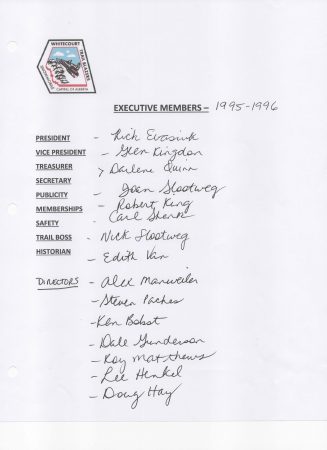 WHITECOURT
TRAIL BLAZERS
CAPITAL OF ALBERTA
EXECUTIVE MEMBERS – 1995-1996
PRESIDENT - Rick
VICE PRESIDENT - Glen Kingdon
TREASURER > Darlene Quinn
SECRETARY
PUBLICITY - Joan Slootweg
MEMBERSHIPS - Robert King
SAFETY Carl
TRAIL BOSS - Nick Slootweg
HISTORIAN - Edith Van
DIRECTORS - Alex Manweiler
- Steven
- Ken Bobst
- Dale Gunderson
- Roy Matthews
- Lee Henkel
- Doug Hay